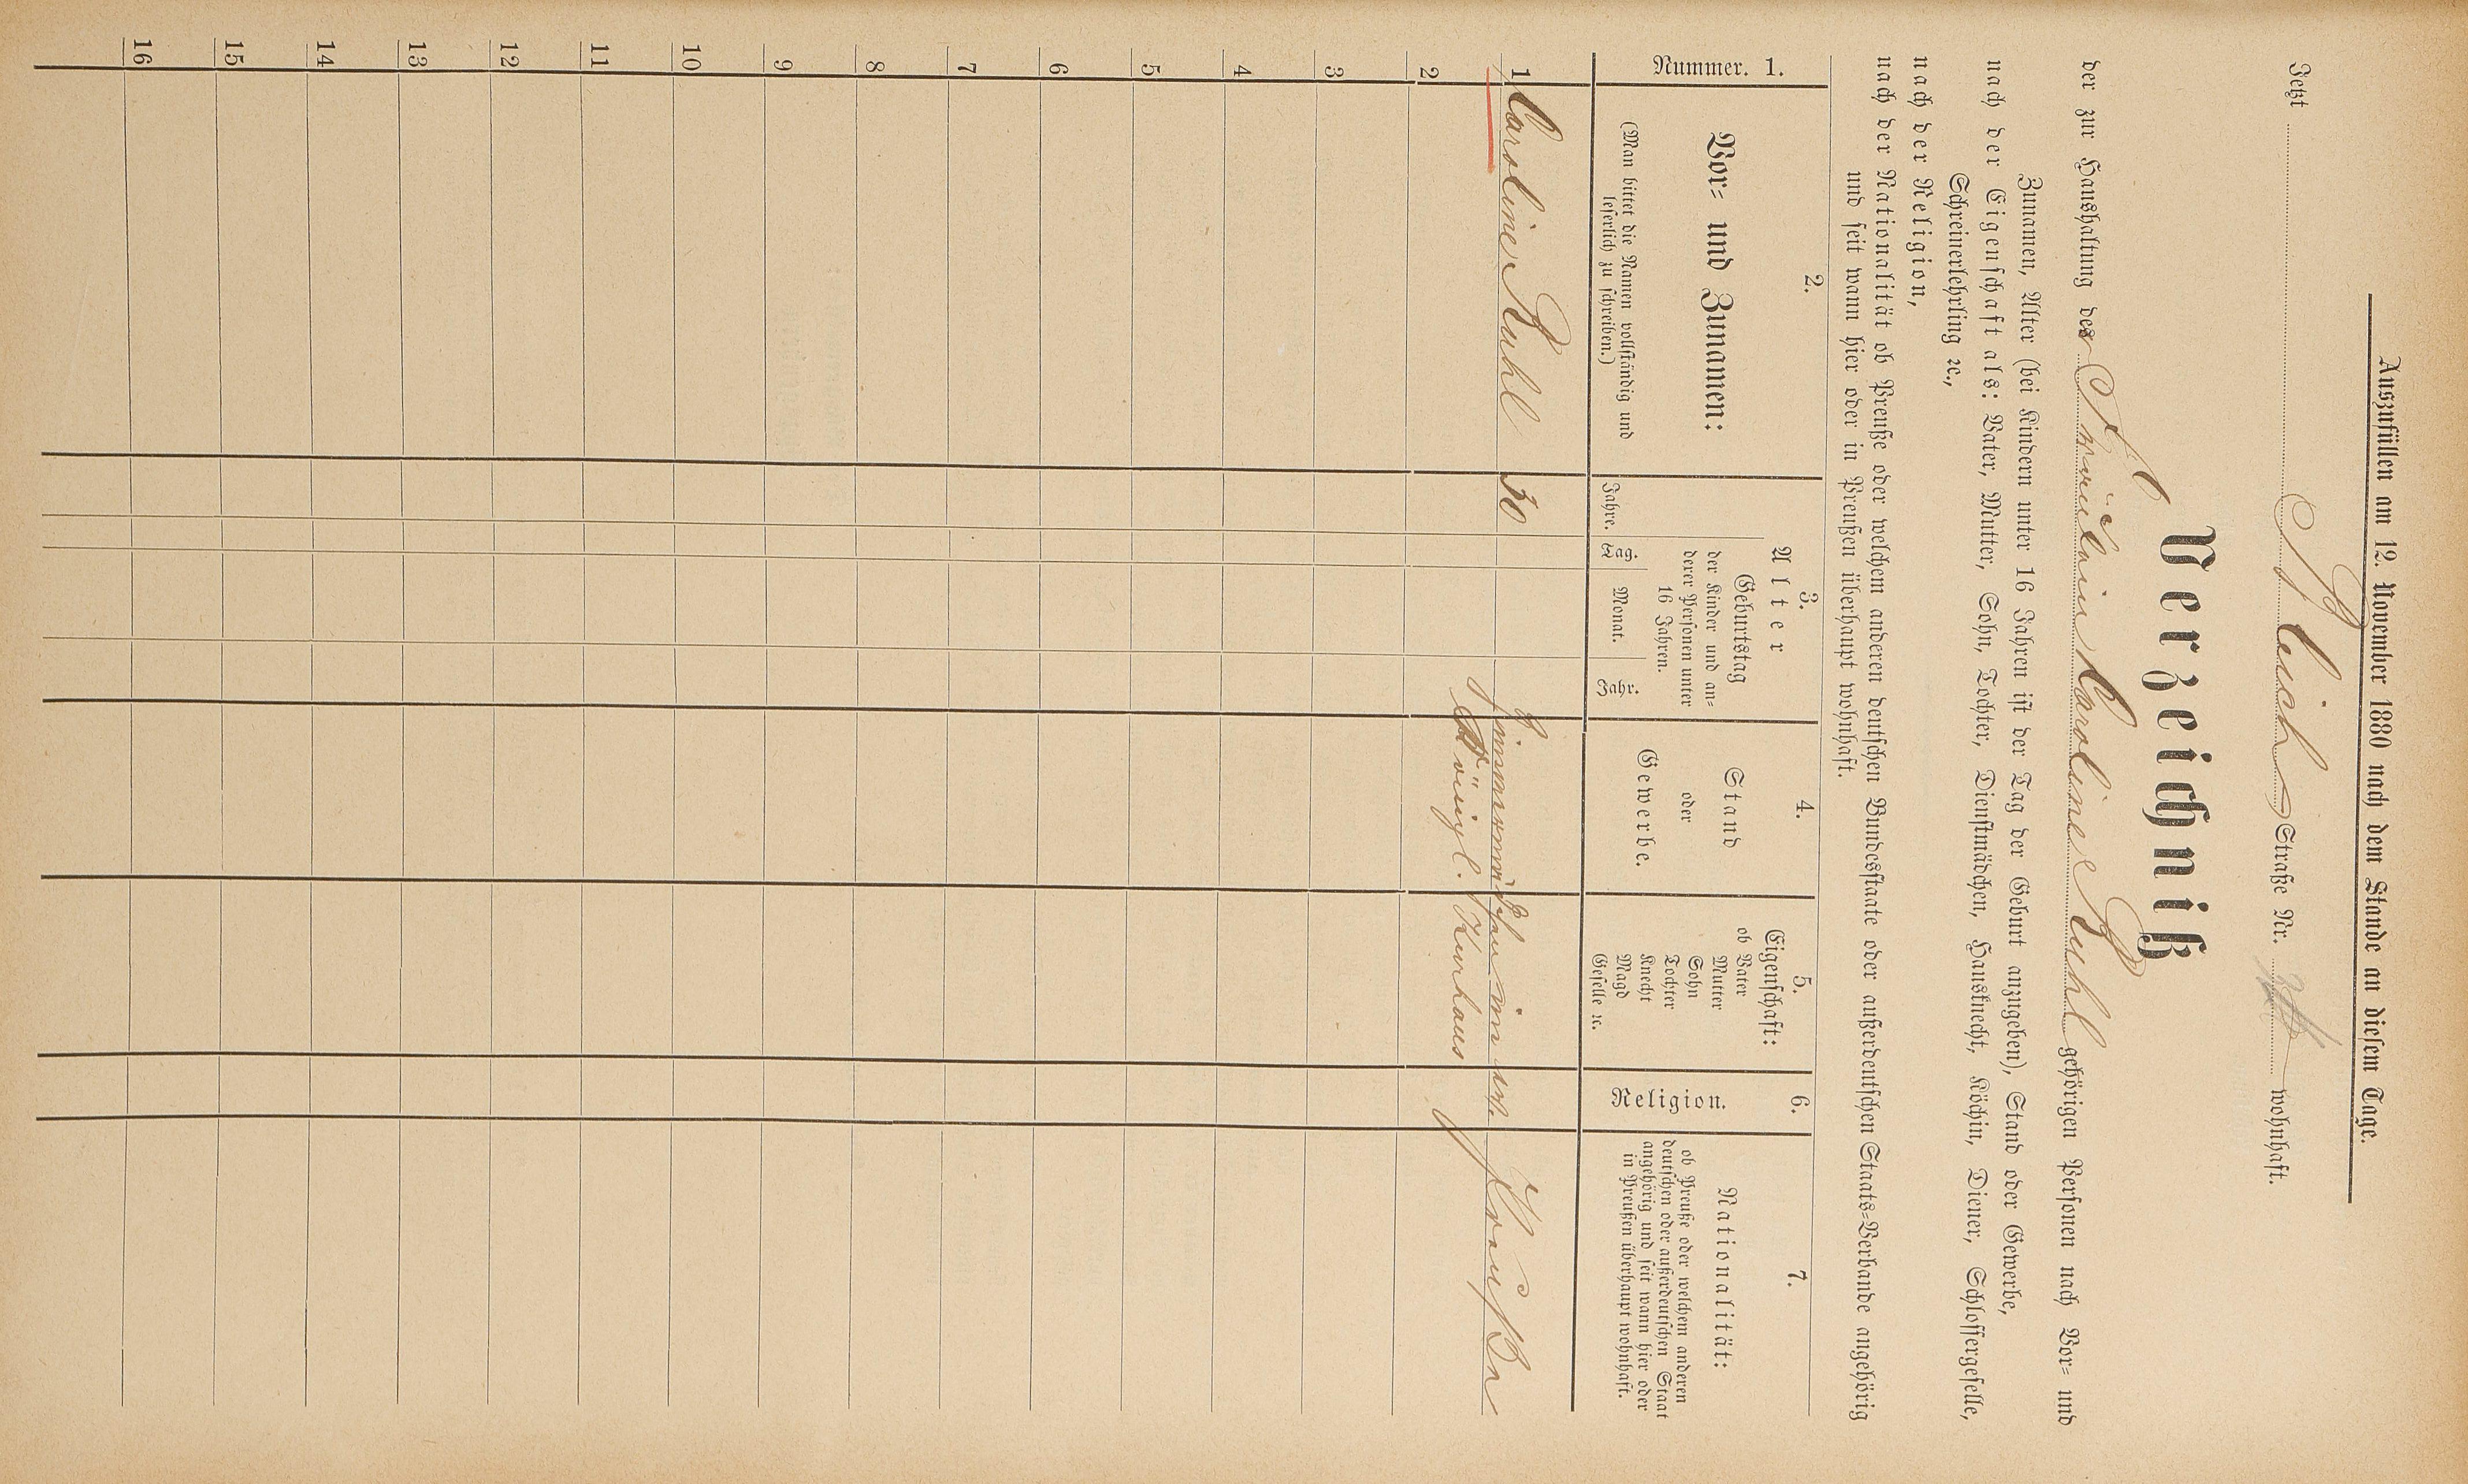 Auszufüllen am 12. November 1880 nach dem Stande an diesem Tage.
Jetzt Straße Nr. wohnhaft.
Verzeichniß
der zur Haushaltung der Fräulein Caroline Ruhl gehörigen Personen nach Vor= und
Zunamen, Alter (bei Kindern unter 16 Jahren ist der Tag der Geburt anzugeben), Stand oder Gewerbe,
nach der Eigenschaft als: Vater, Mutter, Sohn, Tochter, Dienstmädchen, Hausknecht, Köchin, Diener, Schlossergeselle,
Schreinerlehrling ꝛc.,
nach der Religion,
nach der Nationalität ob Preuße oder welchem anderen deutschen Bundesstaate oder außerdeutschen Staats=Verbande angehörig
und seit wann hier oder in Preußen überhaupt wohnhaft.
Nummer. 1.
2.
Vor= und Zunamen:
(Man bittet die Namen vollständig und
leserlich zu schreiben.)
3.
Alter
Geburtstag
der Kinder und an=
derer Personen unter
16 Jahren.
Jahre.
Tag.
Monat.
Jahr.
4.
Stand
oder
Gewerbe.
5.
Eigenschaft:
ob Vater
Mutter
Sohn
Tochter
Knecht
Magd
Geselle ꝛc.
6.
Religion.
7.
Nationalität:
ob Preuße oder welchem anderen
deutschen oder außerdeutschen Staat
angehörig und seit wann hier oder
in Preußen überhaupt wohnhaft.
1 Caroline Ruhl 30 im ev. Preußen
Königl. Kurhaus
2
3
4
5
6
7
8
9
10
11
12
13
14
15
16